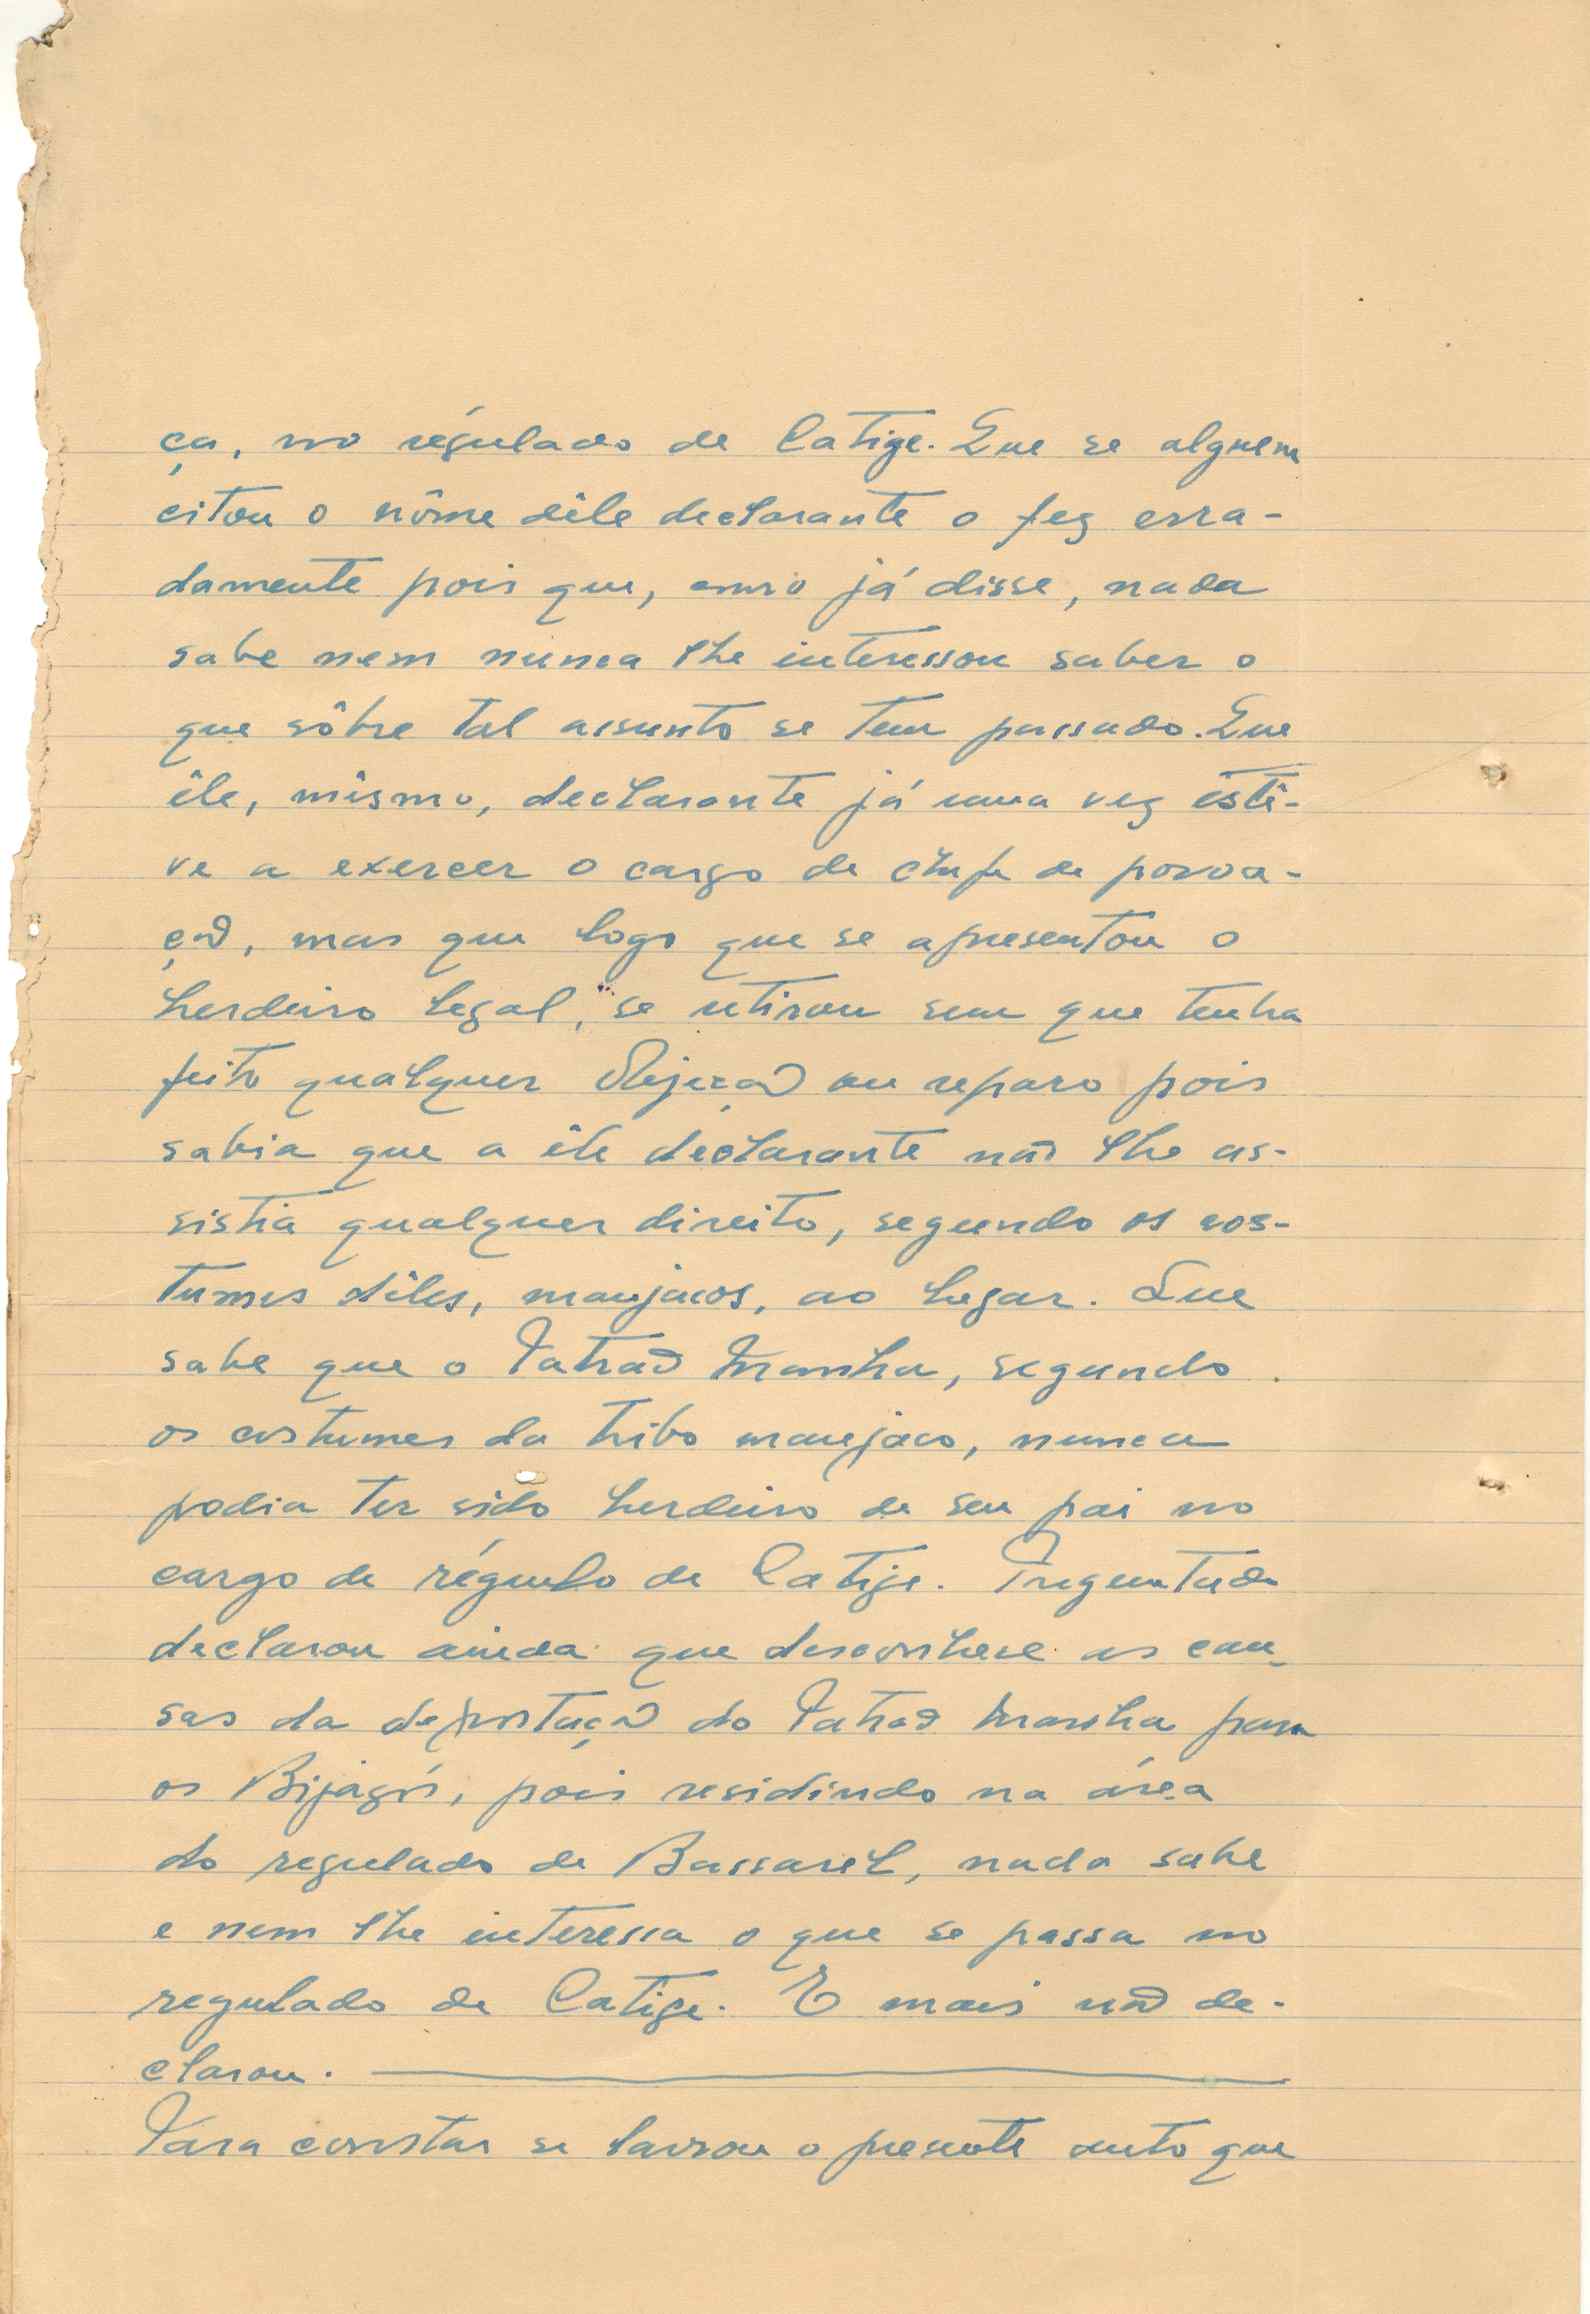 ça, no régulado de Catige. Que se alguem
citou o nôme dêle declarante o fez erra-
damente pois que, como já disse, nada
sabe nem nunca lhe interessou saber o
que sôbre tal assunto se tem passado. Que
êle, mêsmo, declarante já uma vez estê-
ve a exercer o cargo de chefe de povoa-
ção, mas que logo que se apresentou o
herdeiro legal, se retirou sem que tenha
feito qualquer objeção ou reparo pois
sabia que a êle declarante não lhe as-
sistia qualquer direito, segundo os cos-
tumes dêles, manjacos, ao lugar. Que
sabe que o Patrão Mansha, segundo
os costumes da tribo manjaco, nunca
podia ter sido herdeiro de seu pai no
cargo de régulo de Catige. Preguntado
declarou ainda que desconhece as cau-
sas da deportação do Patrão Mansha para
os Bijagós, pois residindo na área
do regulado de Bassarel, nada sabe
e nem lhe interessa o que se passa no
regulado de Catige. E mais não de-
clarou.
Para constar se lavrou o presente auto que